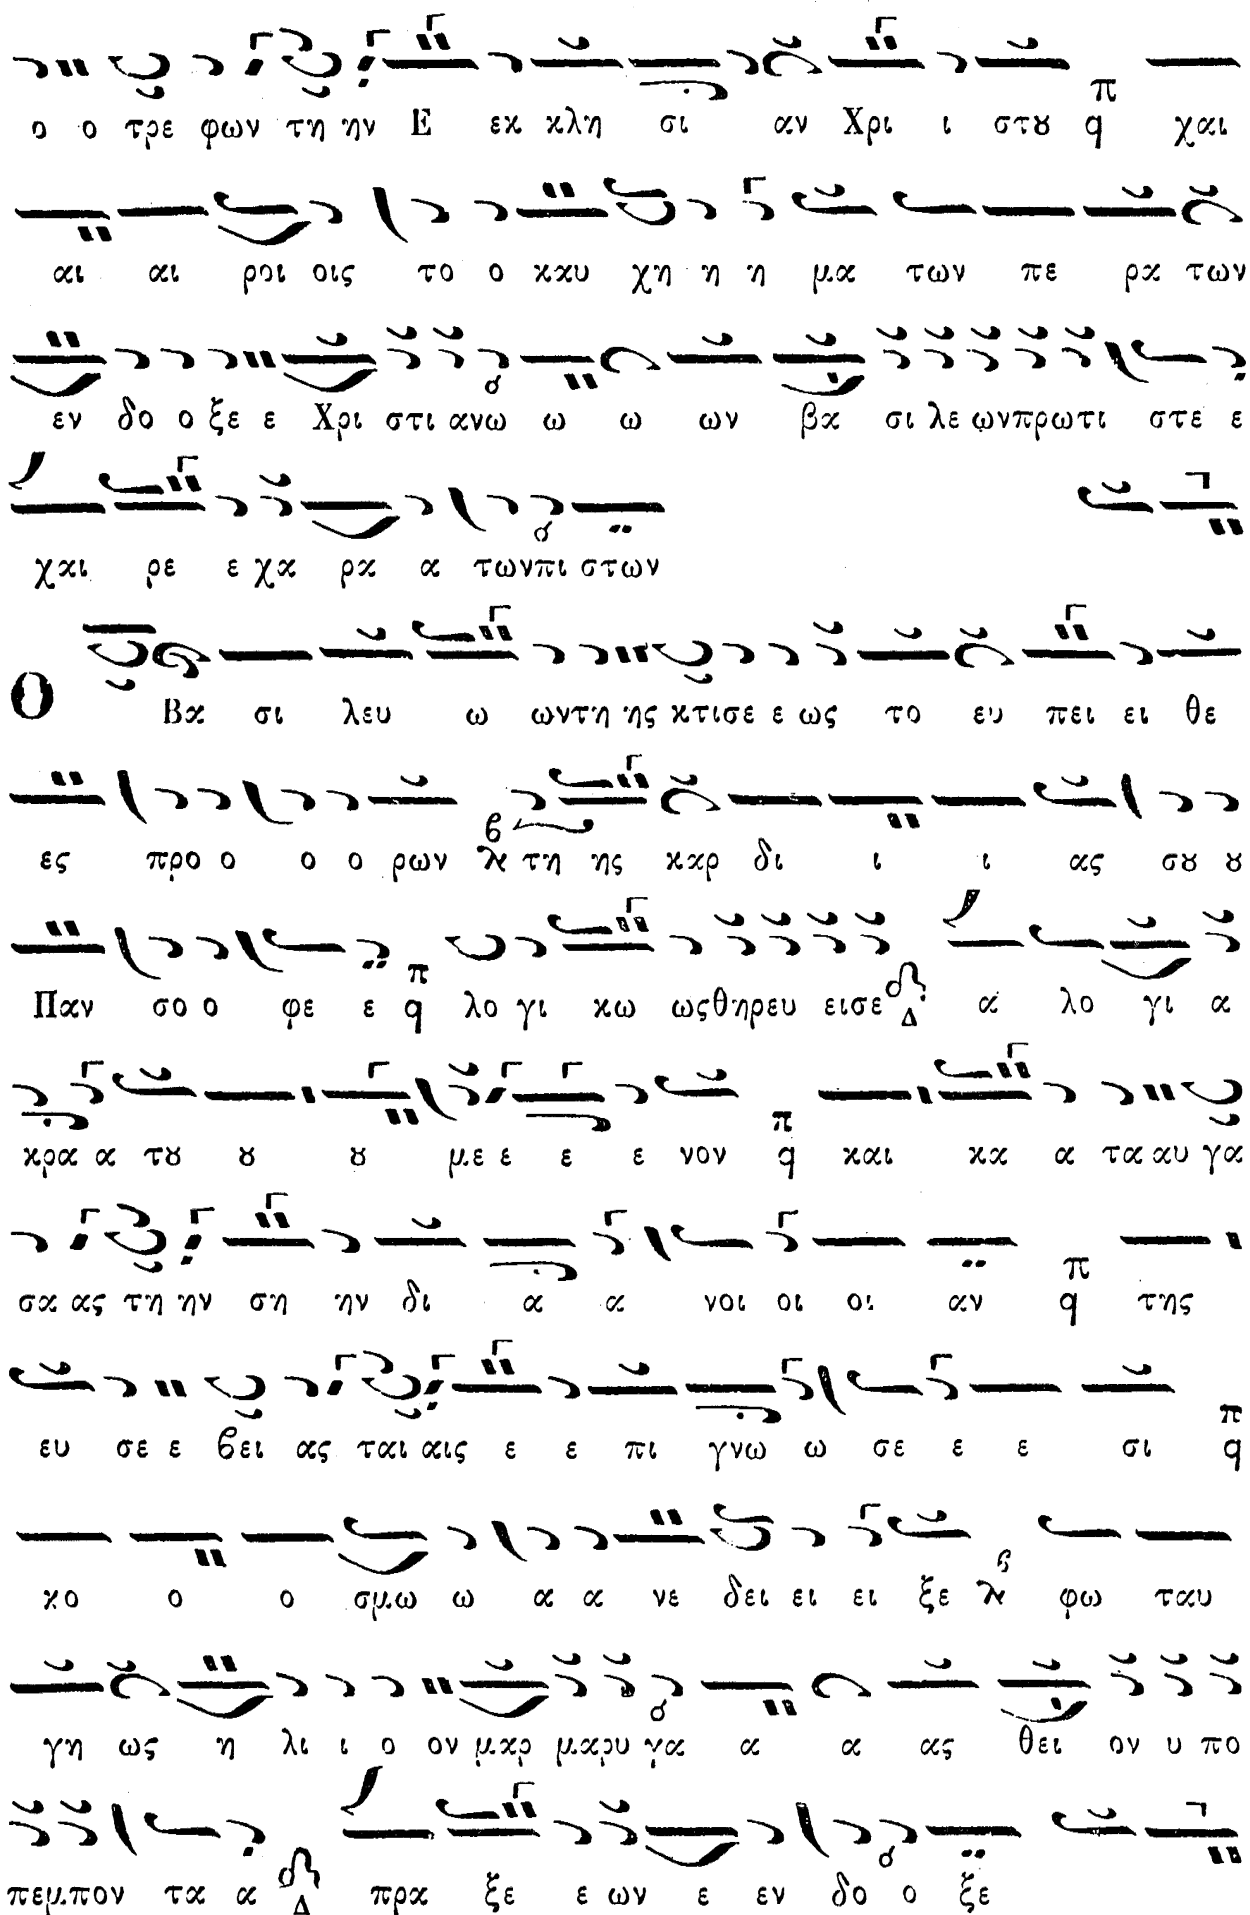 ο ο τρε φων τη ην Ε εκ κλη σι αν Χρι ι στȣ π q χαι
αι αι ροι οις το ο καυ χη η η μα των πε ρα των
εν δο ο ξε ε Χρι στι ανω ω ω ων βα σι λε ωνπρωτι στε ε
χαι ρε ε χα ρα α τωνπι στων
Ο Βα σι λευ ω ωντη ης κτισε ε ως το ευ πει ει θε
ες προ ο ο ο ρων τη ης καρ δι ι ι ας σȣ ȣ
Παν σο ο φε ε π q λο γι κω ωςθηρευ εισε Δ α λο γι α
κρα α τȣ ȣ ȣ με ε ε ε νον π q και κα α τα αυ γα
σα ας τη ην ση ην δι α α νοι οι οι αν π q της
ευ σε ε βει ας ται αις ε ε πι γνω ω σε ε ε σι π q
κο ο ο σμω ω α α νε δει ει ει ξε φω ταυ
γη ως η λι ι ο ον μαρ μαρυ γα α α ας θει ον υ πο
πεμπον τα α Δ πρα ξε ε ων ε εν δο ο ξε